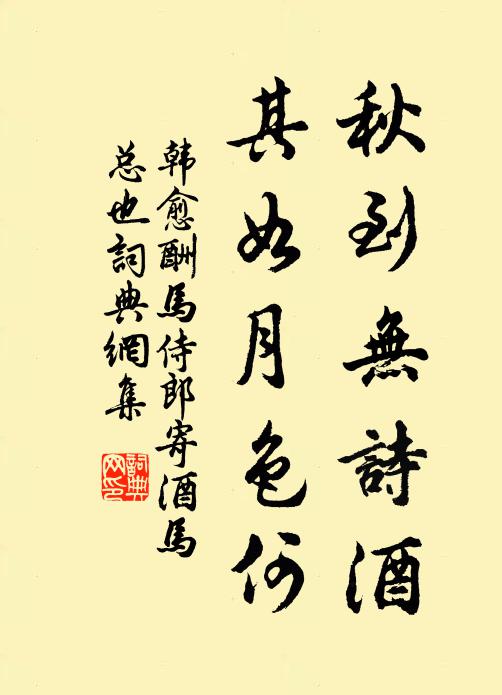 秋到無詩酒
其如月色何
韩愈酬馬侍郎寄酒馬
总也詞典網集
詞典
网印